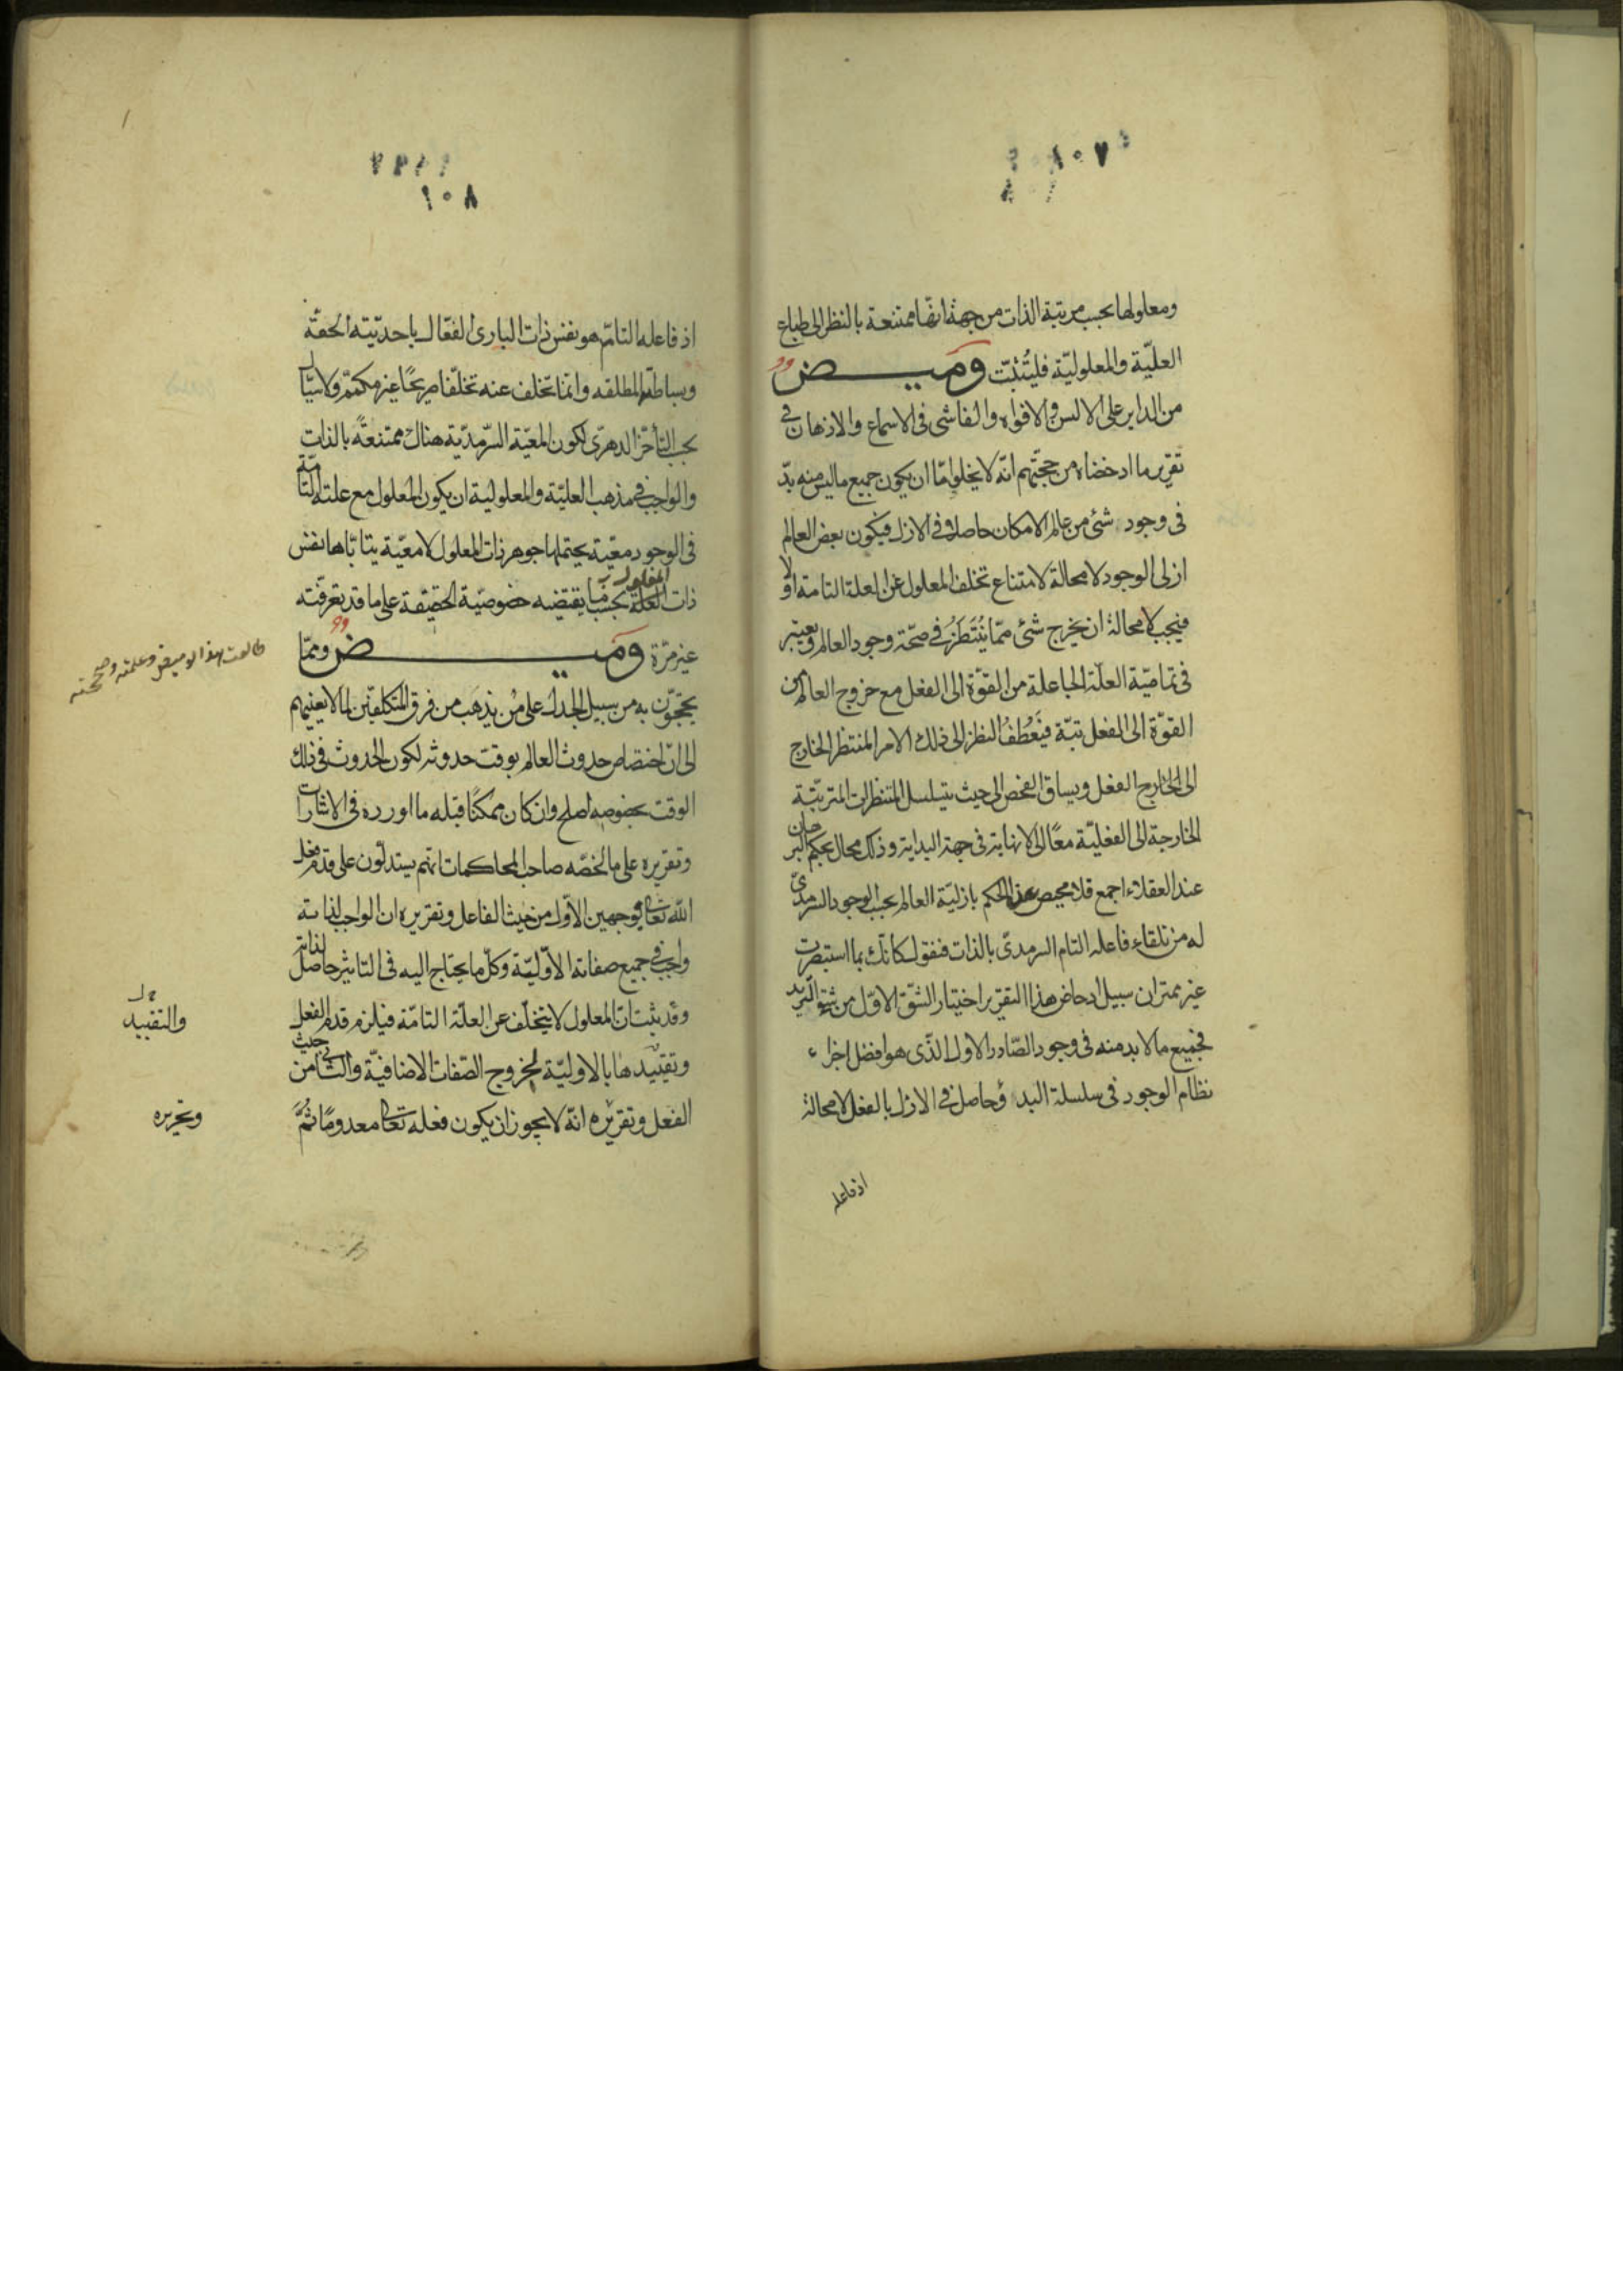 ومعلولها بحسب مرتبة الذات من جهة انها ممتنعة بالنظر الى طباع
العليّة والمعلوليّة فليُتثبّت وميض
من الداير على الالسن والافواه والفاشى فى الاسماع والاذهان فى
تقرير ما ادحضناه من حجتهم انّه لا يخلو امّا ان يكون جميع ما ليس منه بدّ
فى وجود شئ من عالم الامكان حاصلا فى الازل فيكون بعض العالم
ازلى الوجود لا محالة لامتناع تخلف المعلول عن العلة التامة اولا
فيجب لا محالة ان يخرج شئ ممّا يُنتَظَرُ فى صحّة وجود العالم ويعتبر
فى تماميّة العلّة الجاعلة من القوّة الى الفعل مع خروج العالم من
القوّة الى الفعل تبّة فيَعْطَفُ النظر الى ذلك الامر المنتظر الخارج
الى الخارج الفعل ويساق الفحص الى حيث يتسلسل المنتظرات المترتّبة
الخارجة الى الفعليّة معًا الى لا نهاية فى جهة البداية وذلك محال بحكم البرهان
عند العقلاء اجمع فلا محيص عن الحكم بازليّة العالم بحسب الوجود السرمدىّ
له من تلقاء فاعله التام السرمدىّ بالذات فنقول كانّك بما استبصرت
غير ممتران سبيل ادحاض هذا التقرير اختيار الشقّ الاوّل من شقى الترديد
فجميع ما لا بد منه فى وجود الصّادر الاول الذّى هو افضل اجزاء
نظام الوجود فى سلسلة البدؤ حاصل فى الازل بالفعل لا محالة
اذ فاعله
١٠٨
اذ فاعله التامّ هو نفس ذات البارئ الفعّال باحديّته الحقّة
وبساطته المطلقه وانّما تخلف عنه تخلّفا صريحًا غير مكمّم ولا سيّال
بحسب التأخّر الدهرىّ لكون المعيّة السّرمديّة هناك ممتنعةً بالذات
والواجب فى مذهب العليّة والمعلولية ان يكون المعلول مع علته التامّة
فى الوجود معيّة يحتملها جوهر ذات المعلول لا معيّة يتاباها نفس
ذات العلّة بحسب ما يقتضيه خصوصيّة الحقيقة على ما قد تعرّفته
المعلول
غير مرّة وميض وممّا
يحتجّون به من سبيل الجدل على من يذهب من فرق المتكلفين لما لا يعنيهم
الى انّ اختصاص حدوث العالم بوقت حدوثه لكون الحدوث فى ذلك
الوقت بخصوصه اصلح وان كان ممكنًا قبله ما اورده فى الاشارات
وتقريره على ما لخصّه صاحب المحاكمات انهم يستدلّون على قدم فعل
الله تعالى بوجهين الاوّل من حيث الفاعل وتقريره ان الواجب لذاته
واجب فى جميع صفاته الاوّليّة وكلّ ما يحتاج اليه فى التاثير حاصل لذاته
وقد ثبت انّ المعلول لا يتخلّف عن العلّة التامّة فيلزم قدم الفعل
وتقييدها بالاوليّة لخروج الصّفات الاضافيّة والثانى من حيث
الفعل وتقريره انّه لا يجوز ان يكون فعله تعالى معدومًا ثُمَّ
طالعت هذا الوميض وعلمته وصححته
والتقييد
وتحريره